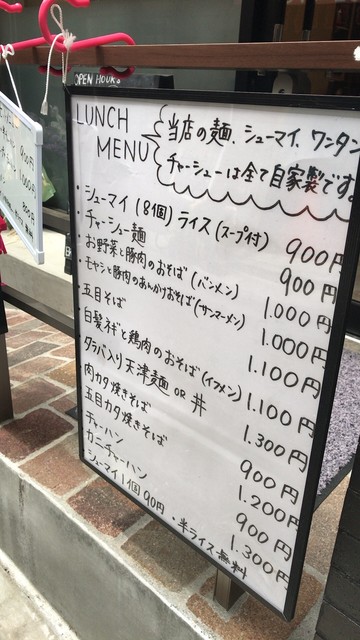 OPEN HOURS
LUNCH MENU
当店の麺、シューマイ、ワンタン
チャーシューは全て自家製です
・シューマイ(8個)ライス(スープ付) 900円
・チャーシュー麺 900円
・お野菜と豚肉のおそば(バンメン) 1.000円
・モヤシと豚肉のあんかけおそば(サンマーメン) 1.000円
・五目そば 1.100円
・白髪ネギと鶏肉のおそば(イフメン) 1.100円
・タラバ入り天津麺 OR 丼 1.300円
・肉カタ焼きそば 900円
・五目カタ焼きそば 1.200円
・チャーハン 900円
・カニチャーハン 1.300円
・シューマイ1個90円 ・半ライス無料